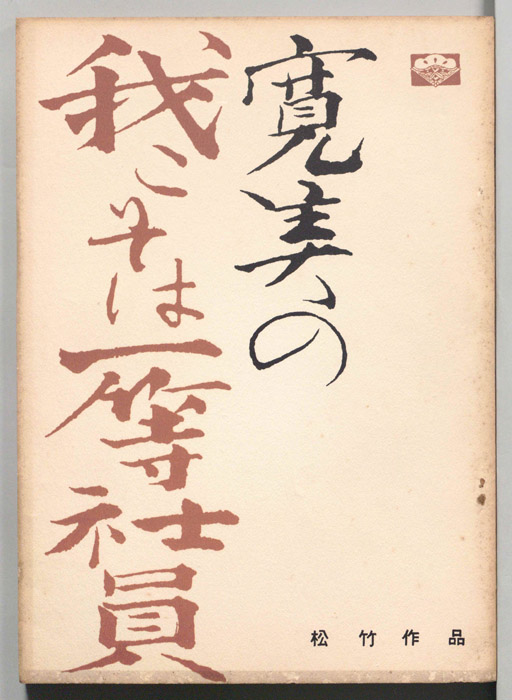 寛美の
我こそは一等社員
松竹作品